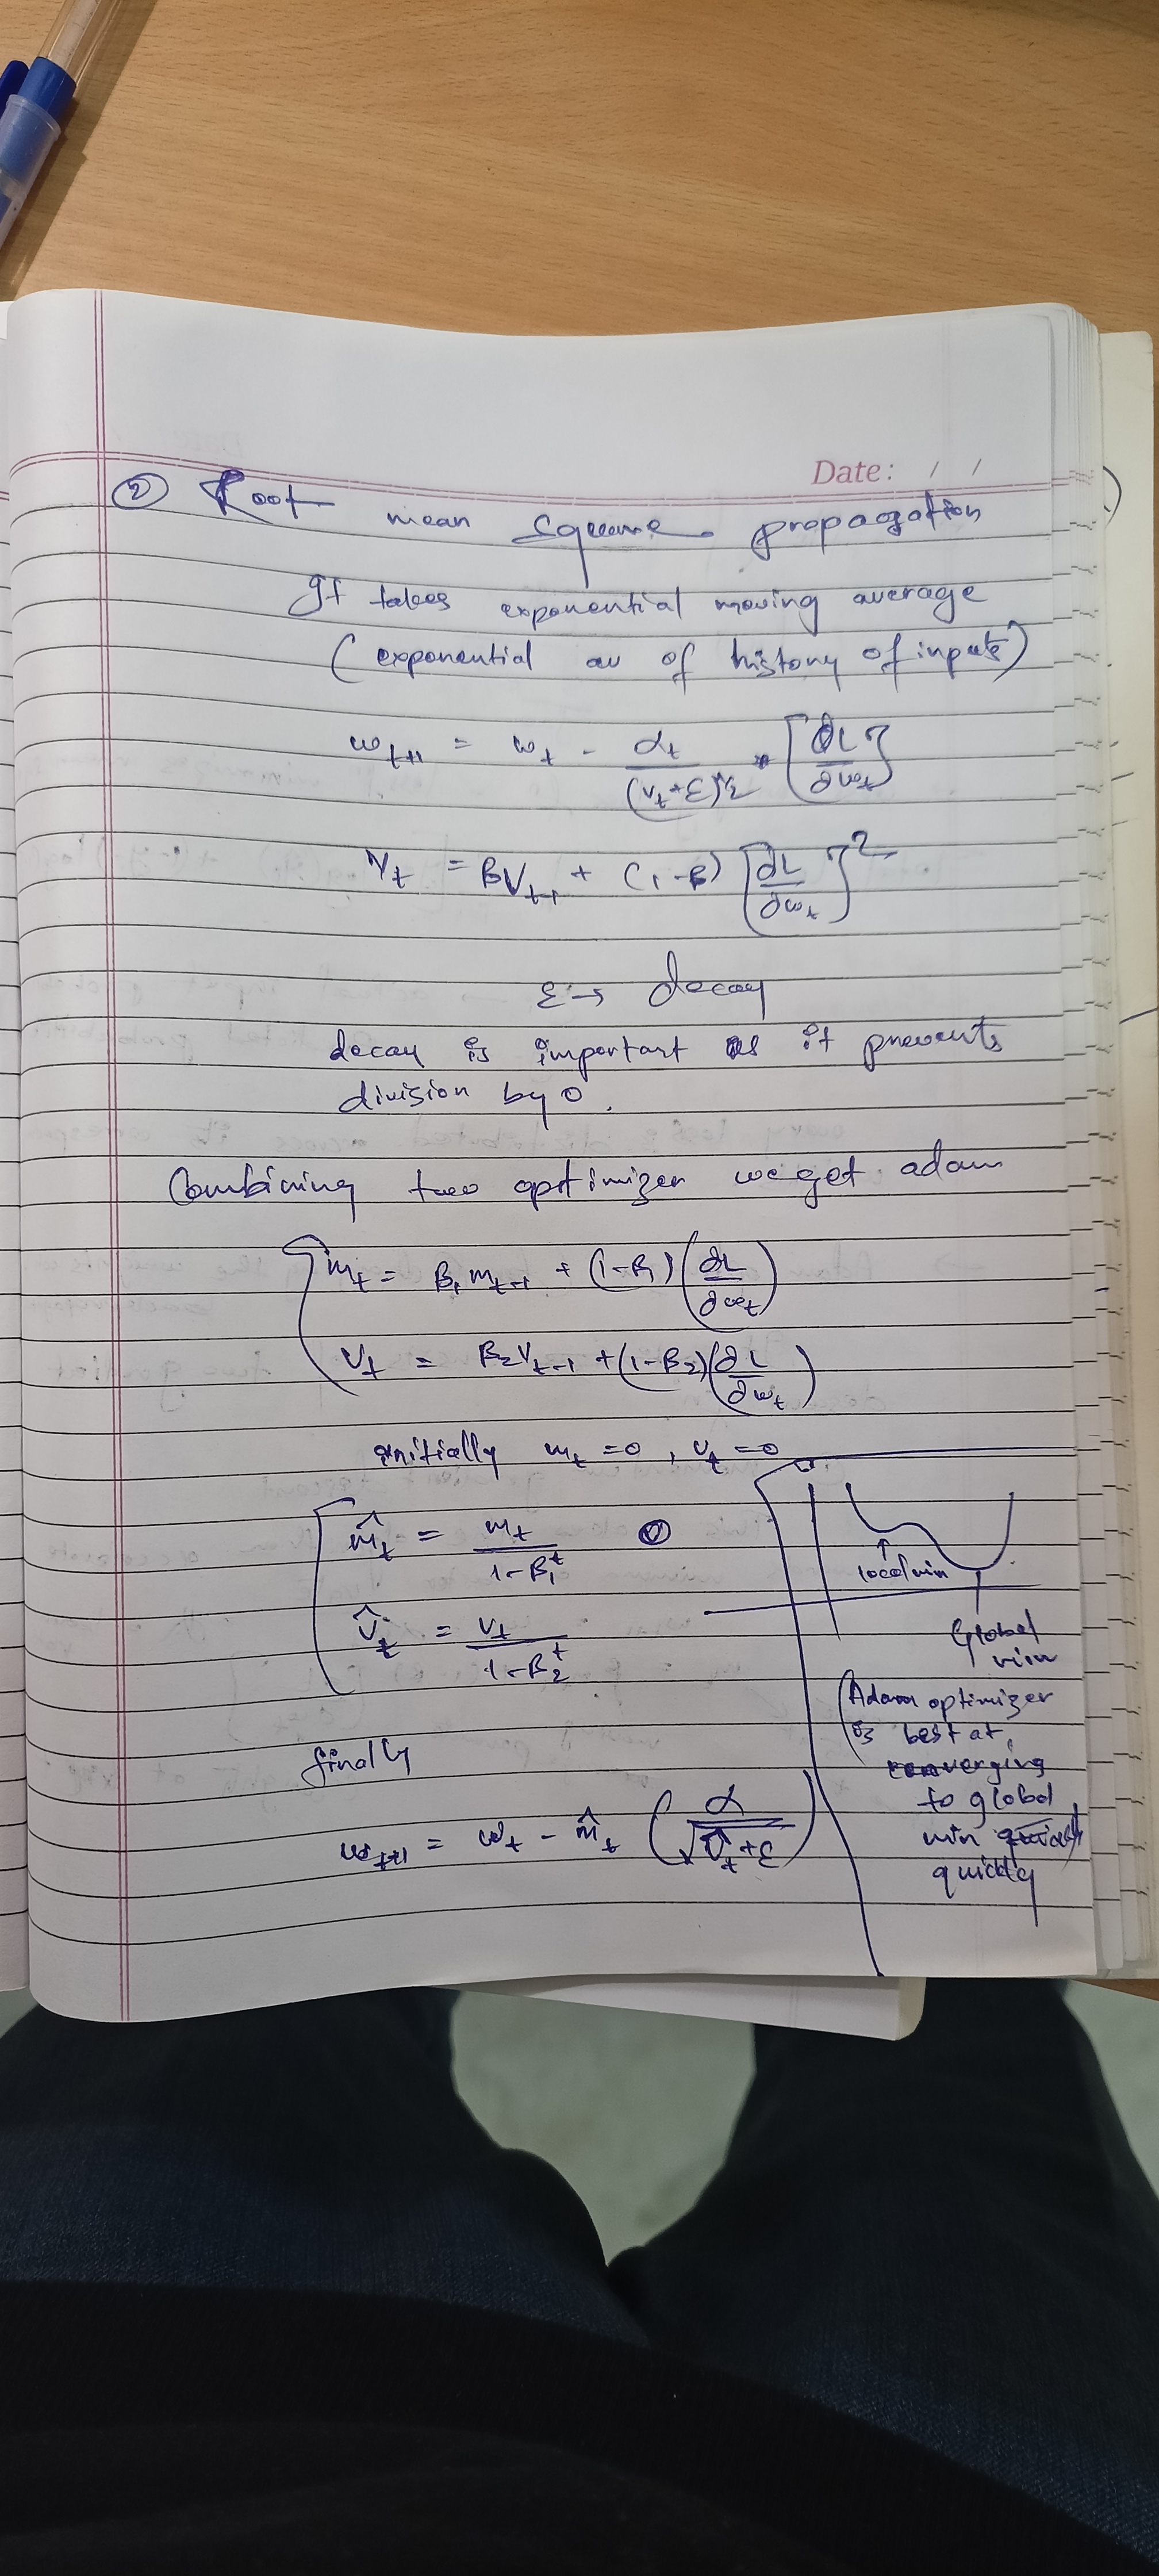 Date: / /
② Root mean square propagation
It takes exponential moving average
(exponential av of history of inputs)
w_{t+1} = w_t - α_t / (v_t+ε)^{1/2} * [∂L/∂w_t]
v_t = βv_{t-1} + (1-β) [∂L/∂w_t]^2
ε → decay
decay is important as it prevents
division by 0.
Combining two optimizer we get adam
m_t = β_1 m_{t-1} + (1-β_1) (∂L/∂w_t)
v_t = β_2 v_{t-1} + (1-β_2) (∂L/∂w_t)
initially m_t = 0, v_t = 0
m̂_t = m_t / 1-β_1^t
v̂_t = v_t / 1-β_2^t
finally
w_{t+1} = w_t - m̂_t (α / √v̂_t+ε)
local min
Global
min
Adam optimizer
is best at
converging
to global
min
quickly